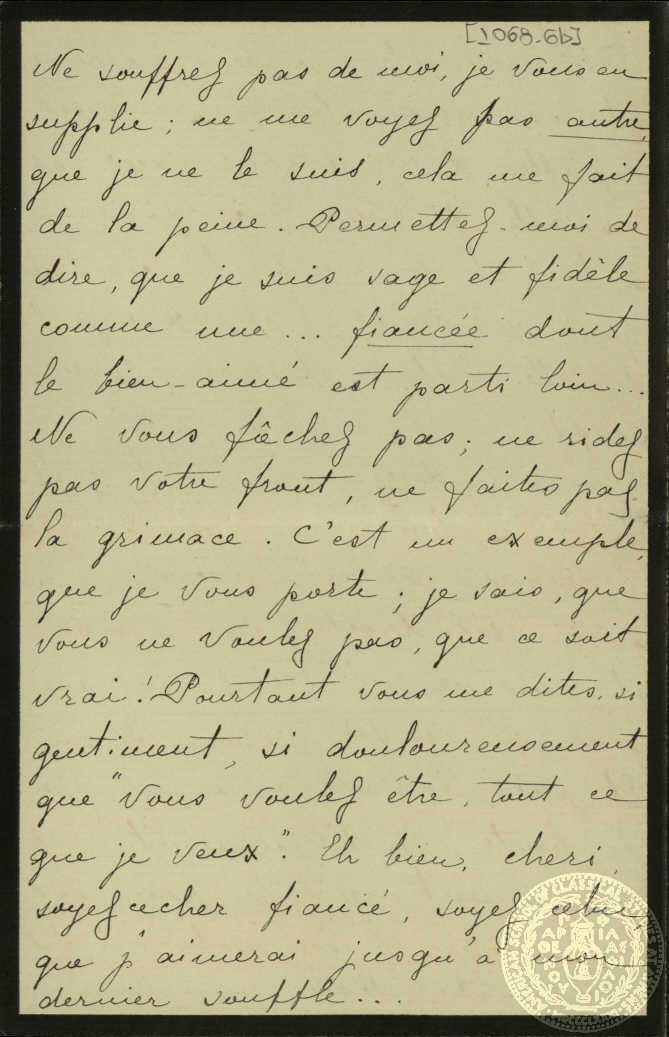 [1068-6b]
Ne souffrez pas de moi, je vous en
supplie ; ne me voyez pas autre,
que je ne le suis, cela me fait
de la peine. Permettez-moi de
dire, que je suis sage et fidèle
comme une ... fiancée dont
le bien-aimé est parti loin...
Ne vous fâchez pas ; ne ridez
pas votre front, ne faites pas
la grimace. C'est un exemple,
que je vous porte ; je sais, que
vous ne voulez pas, que ce soit
vrai ! Pourtant vous me dites, si
gentiment, si douloureusement
que "vous voulez être, tout ce
que je veux". Eh bien, cheri,
soyez ce cher fiancé, soyez celui,
que j'aimerai jusqu'à mon
dernier souffle...